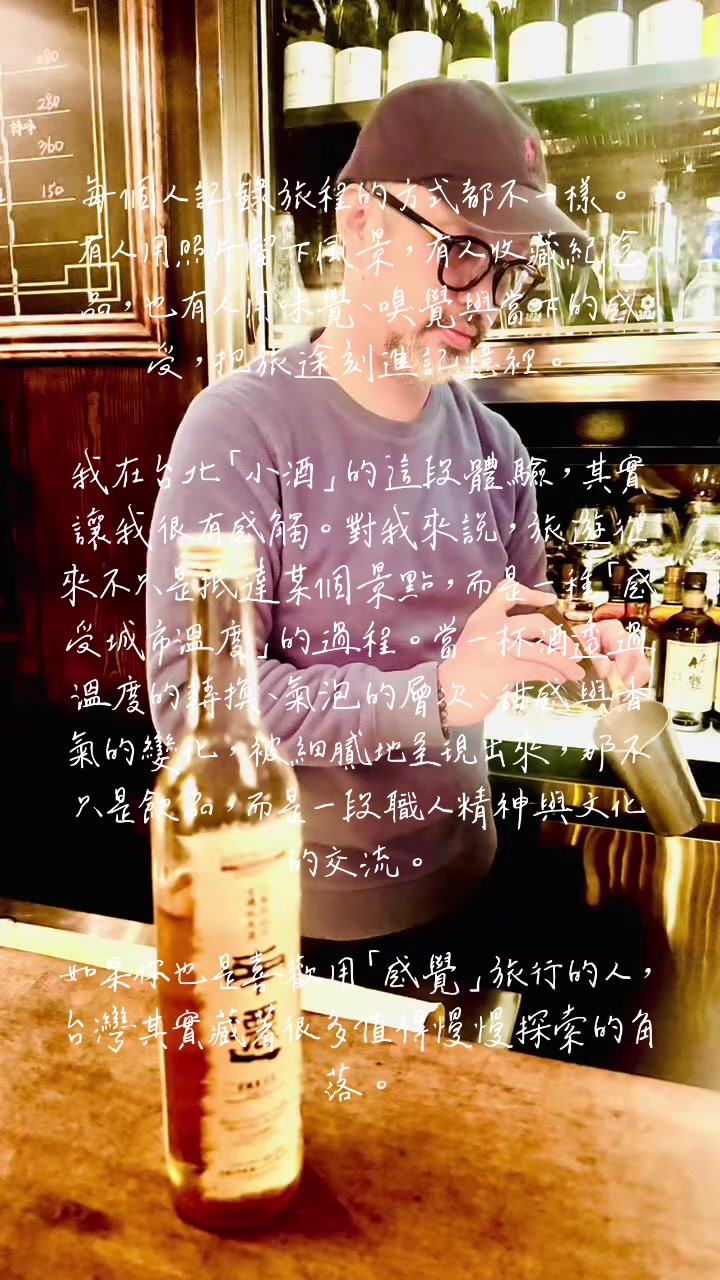 280
280
特味
360
150
每個人記錄旅程的方式都不一樣。
有人用照片留下風景，有人收藏紀念
品，也有人用味覺、嗅覺與當下的感
受，把旅途刻進記憶裡。
我在台北「小酒」的這段體驗，其實
讓我很有感觸。對我來說，旅遊從
來不只是抵達某個景點，而是一種「感
受城市溫度」的過程。當一杯酒透過
溫度的轉換、氣泡的層次、甜感與香
氣的變化，被細膩地呈現出來，那不
只是飲品，而是一段職人精神與文化
的交流。
如果你也是喜歡用「感覺」旅行的人，
台灣其實藏著很多值得慢慢探索的角
落。